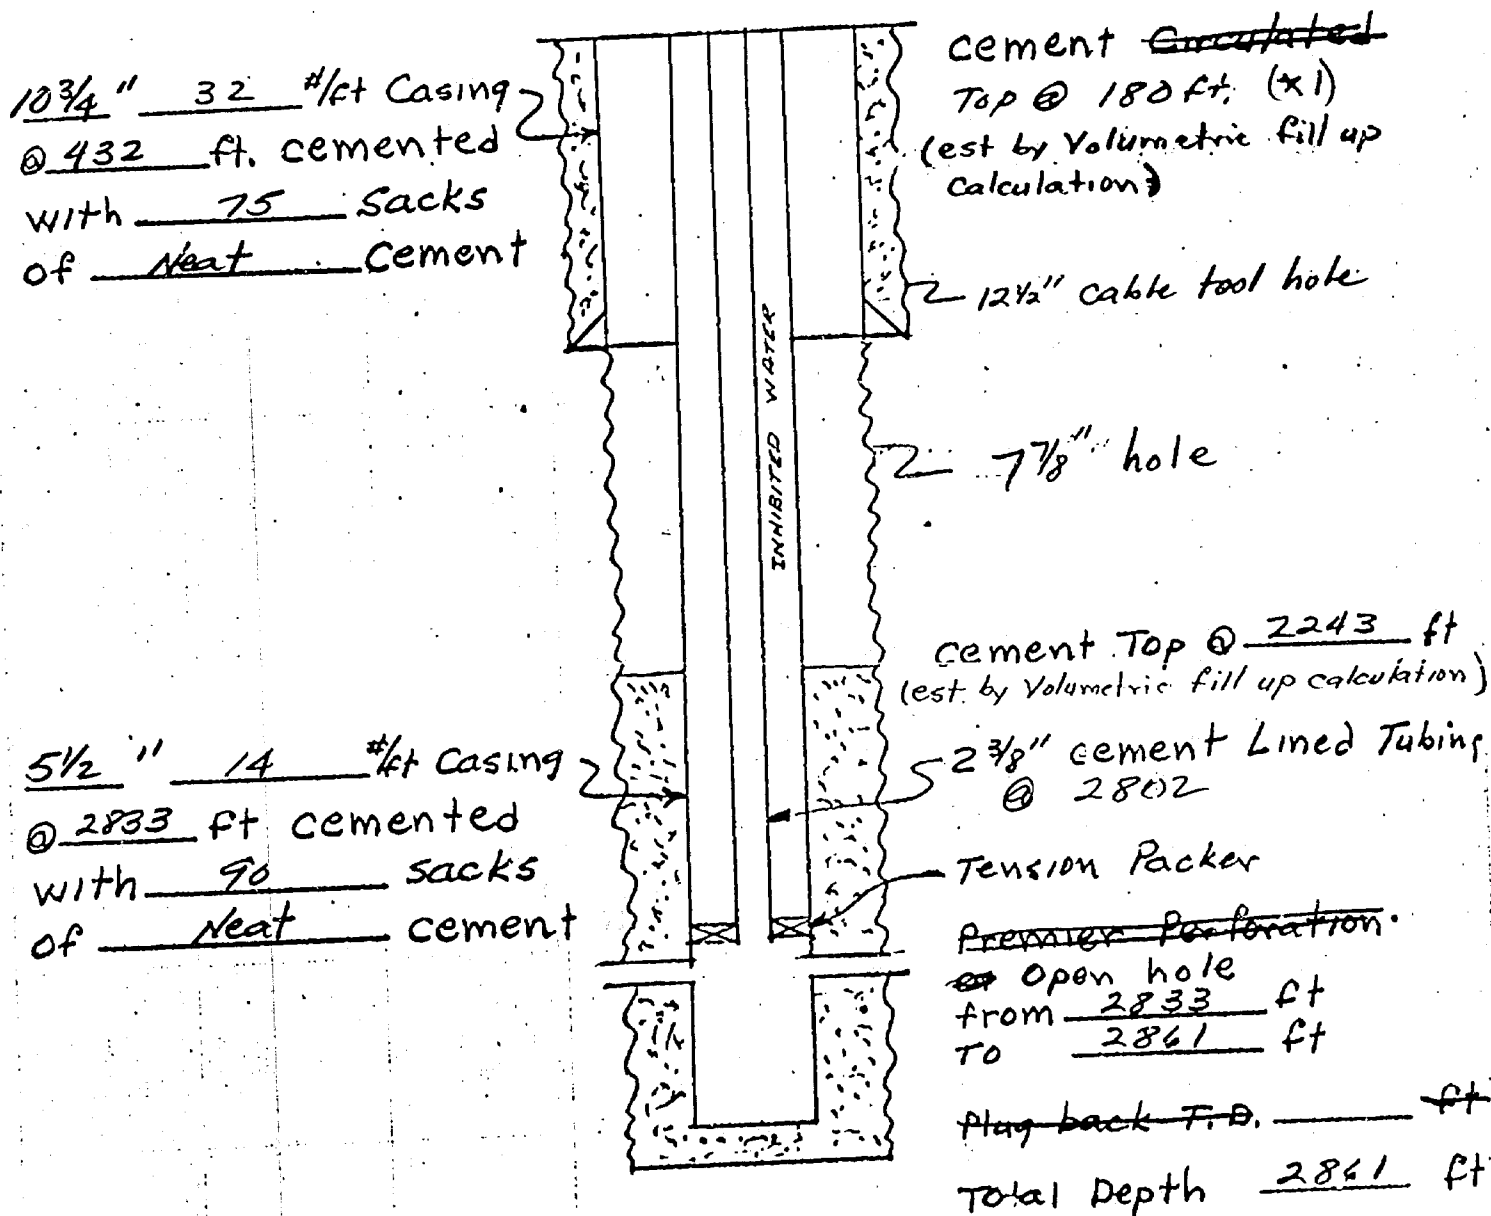 10 3/4 " 32 #/ft Casing
@ 432 ft. cemented
with 75 Sacks
of Neat Cement
cement Circulated
Top @ 180 ft. (x1)
(est by Volumetric fill up
Calculation)
12 1/2" cable tool hole
INHIBITED WATER
7 7/8" hole
cement Top @ 2243 ft
(est. by Volumetric fill up calculation)
5 1/2 " 14 #/ft Casing
@ 2833 ft cemented
with 90 sacks
of Neat cement
2 3/8" cement Lined Tubing
@ 2802
Tension Packer
Premier Perforation
or Open hole
from 2833 ft
TO 2861 ft
Plug back T.D. ft
Total Depth 2861 ft